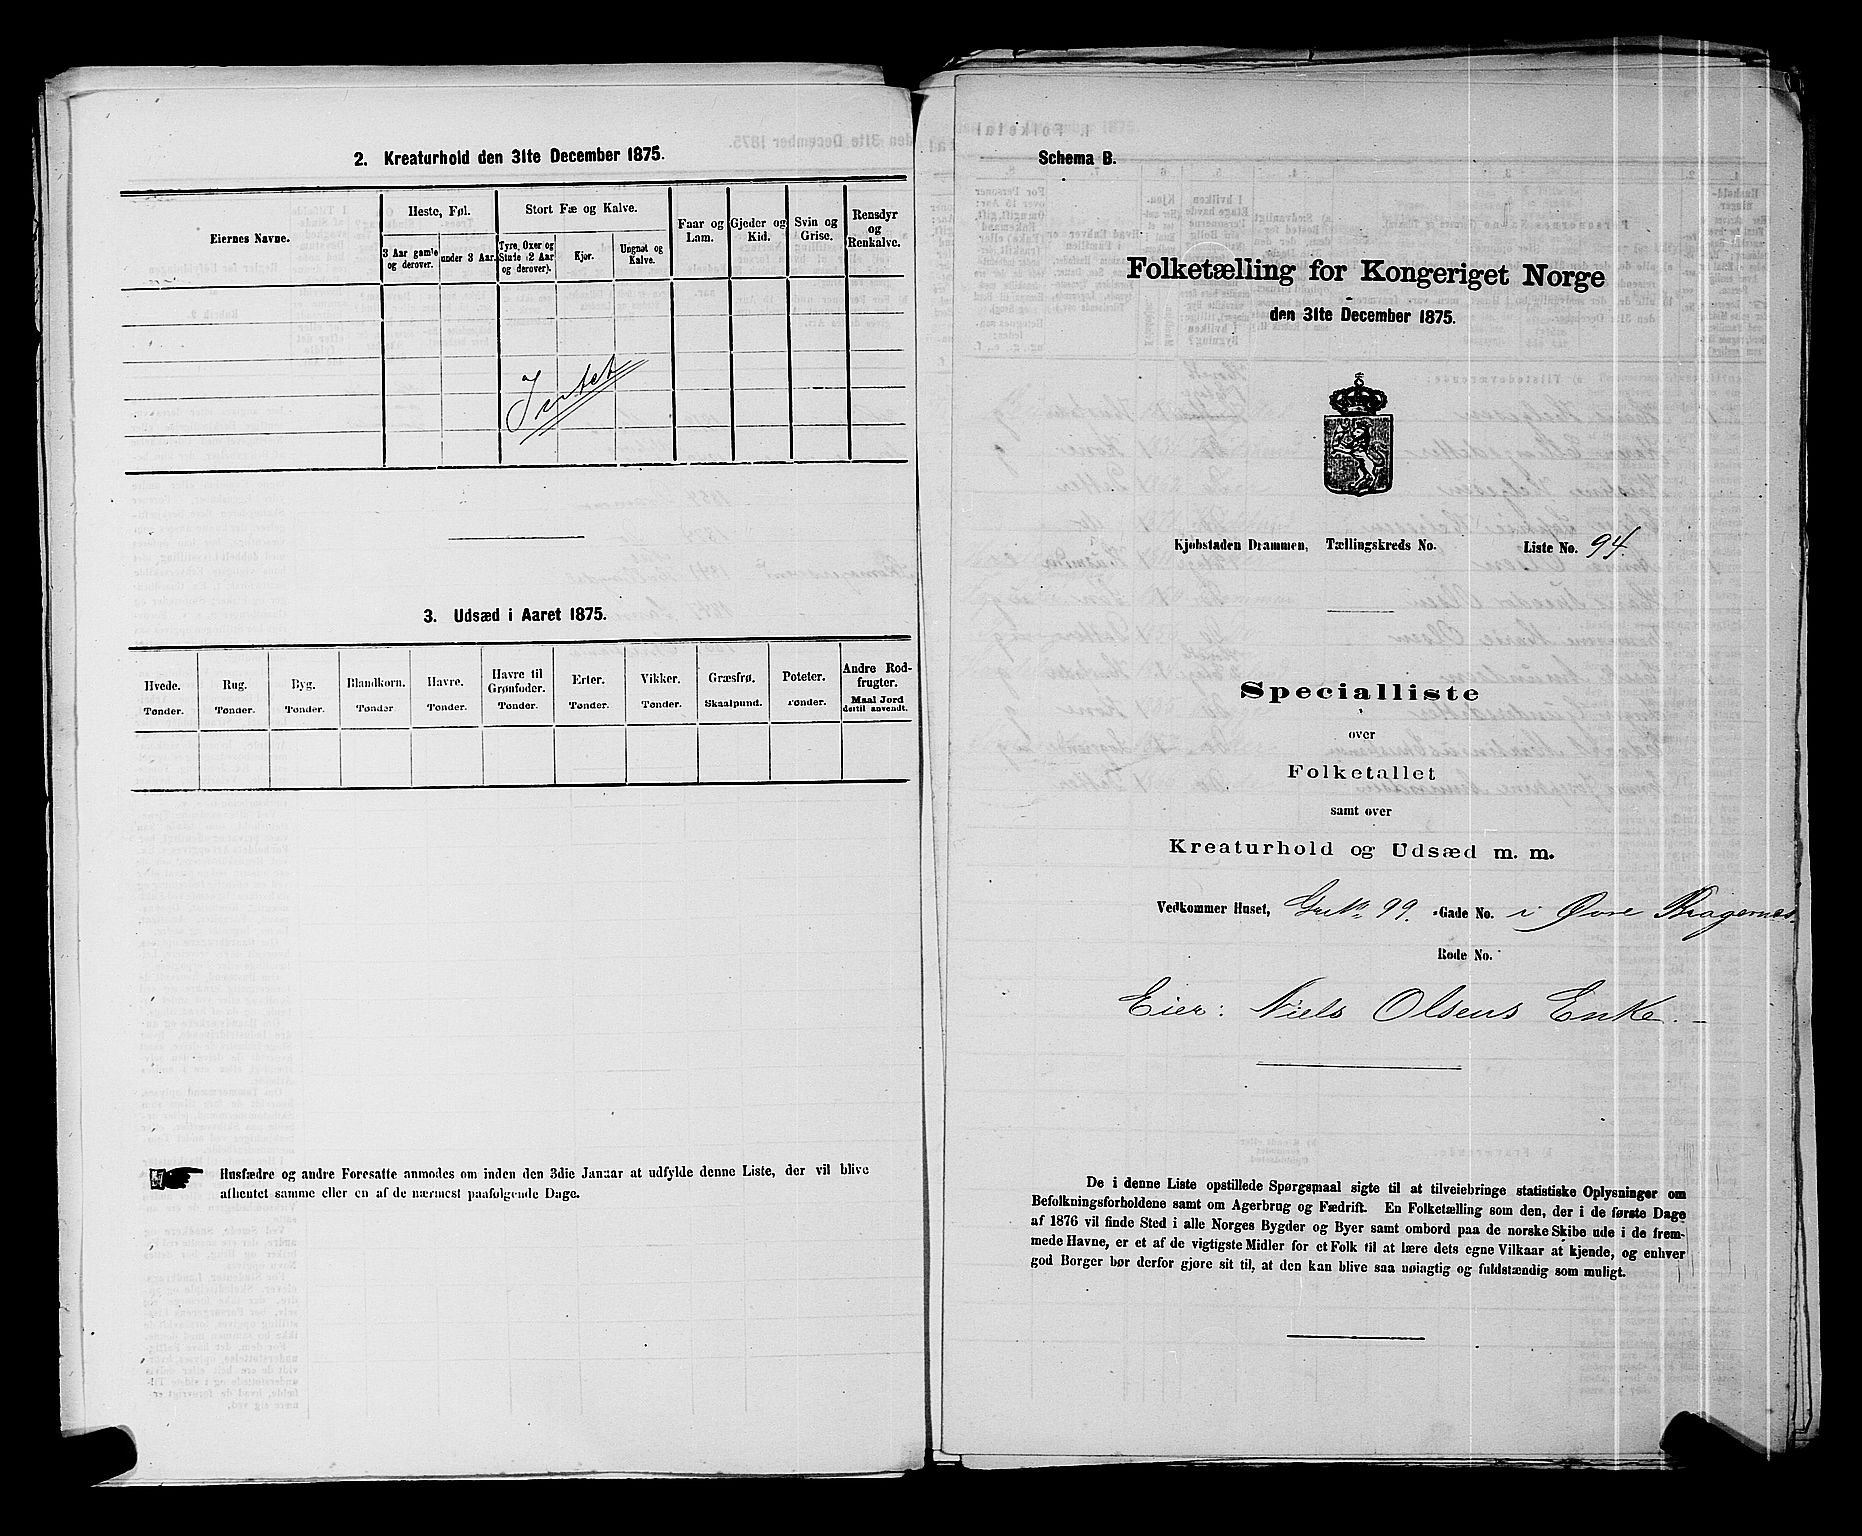 2. Kreaturhold den 31te December 1875.
Eiernes Navne.
Heste, Føl.
3 Aar gamle og derover.
under 3 Aar.
Stort Fæ og Kalve.
Tyre, Oxer og Stude (2 Aar og derover).
Kjør.
Ungnøt og Kalve.
Faar og Lam.
Gjeder og Kid.
Svin og Grise.
Rensdyr og Renkalve.
Intet
3. Udsæd i Aaret 1875.
Hvede. Tønder.
Rug. Tønder.
Byg. Tønder.
Blandkorn. Tønder
Havre. Tønder.
Havre til Grønfoder. Tønder.
Erter. Tønder.
Vikker. Tønder.
Græsfrø. Skaalpund.
Poteter. Tønder.
Andre Rodfrugter. Maal Jord dertil anvendt.
Husfædre og andre Foresatte anmodes om inden den 3die Januar at udfylde denne Liste, der vil blive
afhentet samme eller en af de nærmest paafølgende Dage.
Schema B.
Folketælling for Kongeriget Norge
den 31te December 1875.
Kjøbstaden Drammen, Tællingskreds No. Liste No. 94.
Specialliste
over
Folketallet
samt over
Kreaturhold og Udsæd m. m.
Vedkommer Huset, Gr. No. 99. -Gade No. i Øvre Bragernes.
Rode No.
Eier: Niels Olsens Enke.
De i denne Liste opstillede Spørgsmaal sigte til at tilveiebringe statistiske Oplysninger om
Befolkningsforholdene samt om Agerbrug og Fædrift. En Folketælling som den, der i de første Dage
af 1876 vil finde Sted i alle Norges Bygder og Byer samt ombord paa de norske Skibe ude i de frem-
mede Havne, er et af de vigtigste Midler for et Folk til at lære dets egne Vilkaar at kjende, og enhver
god Borger bør derfor gjøre sit til, at den kan blive saa nøiagtig og fuldstændig som muligt.